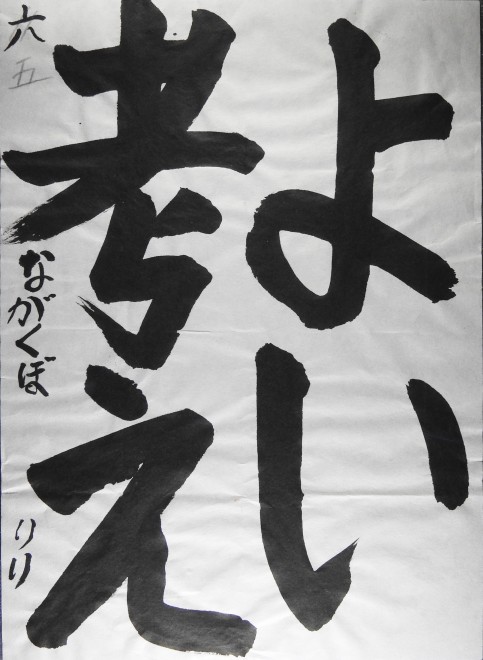 よい
考え
六五
ながくぼ りり